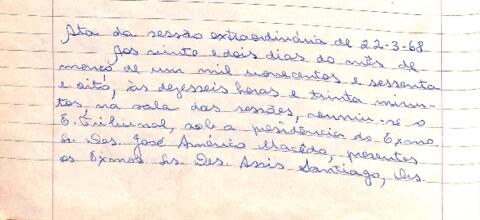 Ata da sessão extraordinária de 22-3-68
Aos vinte e dois dias do mês de
março de um mil novecentos e sessenta
e oito, às dezesseis horas e trinta minu-
tos, na sala das sessões, reuniu-se o
E. Tribunal, sob a presidência do Exmo.
Sr. Des. José Américo Macêdo, presentes
os Exmos. Srs. Des. Assis Santiago, Des.